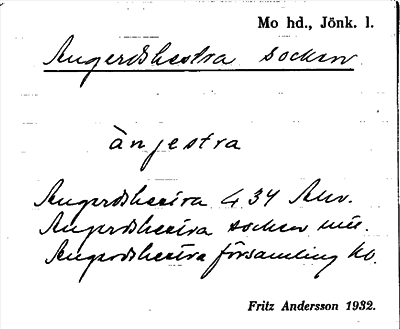 Mo hd., Jönk. l.
Angerdshestra socken
ànjestra
Angerdshestra 4 34 Anv.
Angerdshestra socken
Angerdshestra församling kb.
Fritz Andersson 1932.